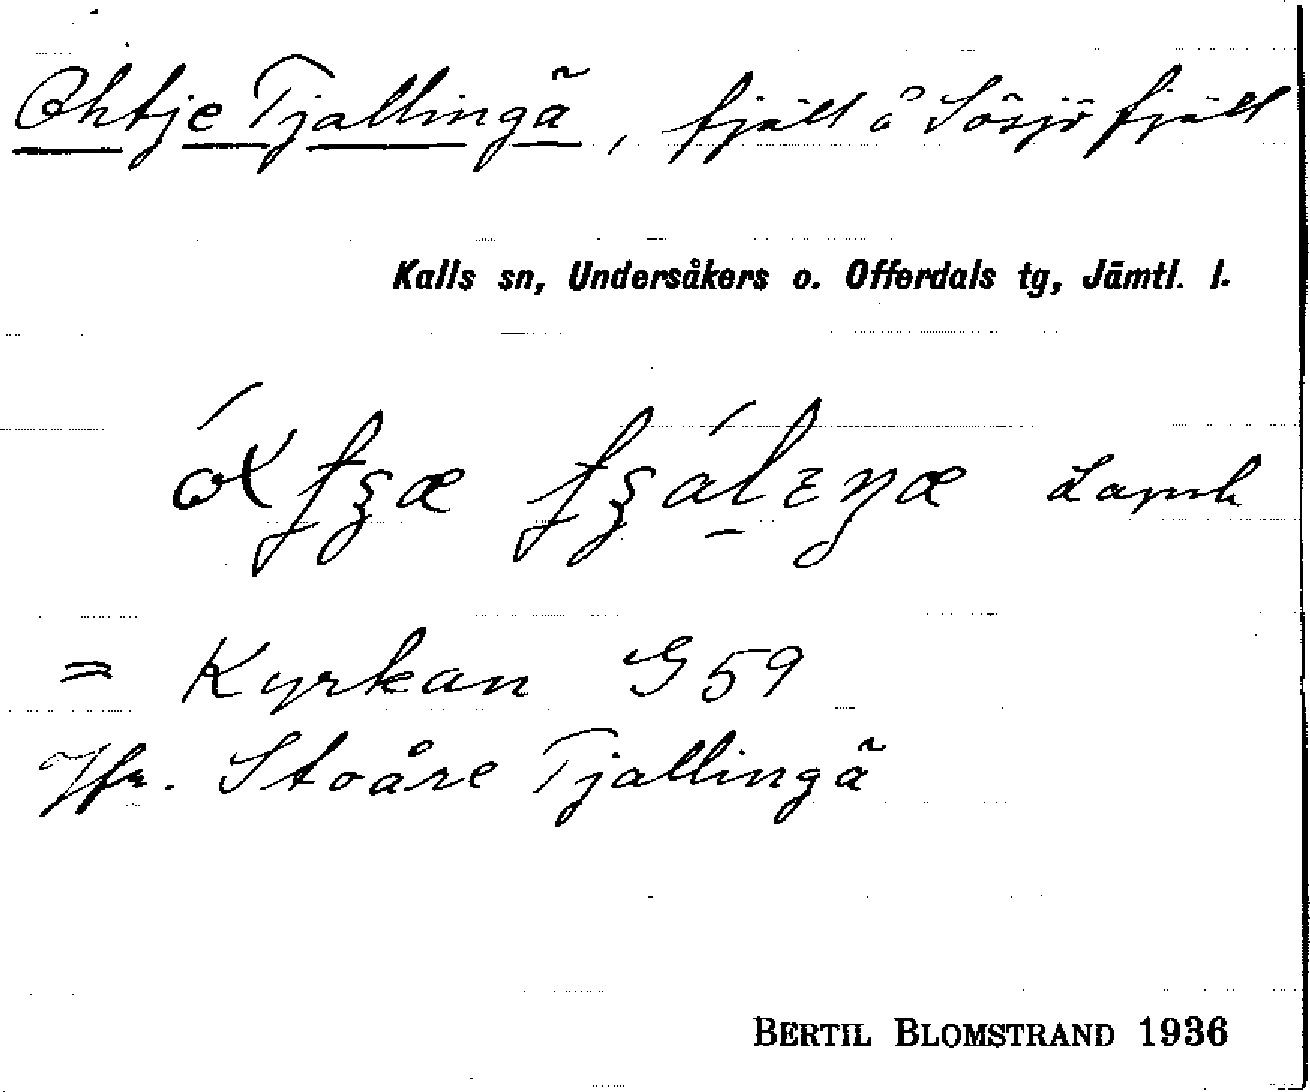 Ohtje Tjallingä, fjäll å Sösjöfjäll
Kalls sn, Undersåkers o. Offerdals tg, Jämtl. l.
= Kyrkan G 59
Jfr. Stoåre Tjallingä
BERTIL BLOMSTRAND 1936